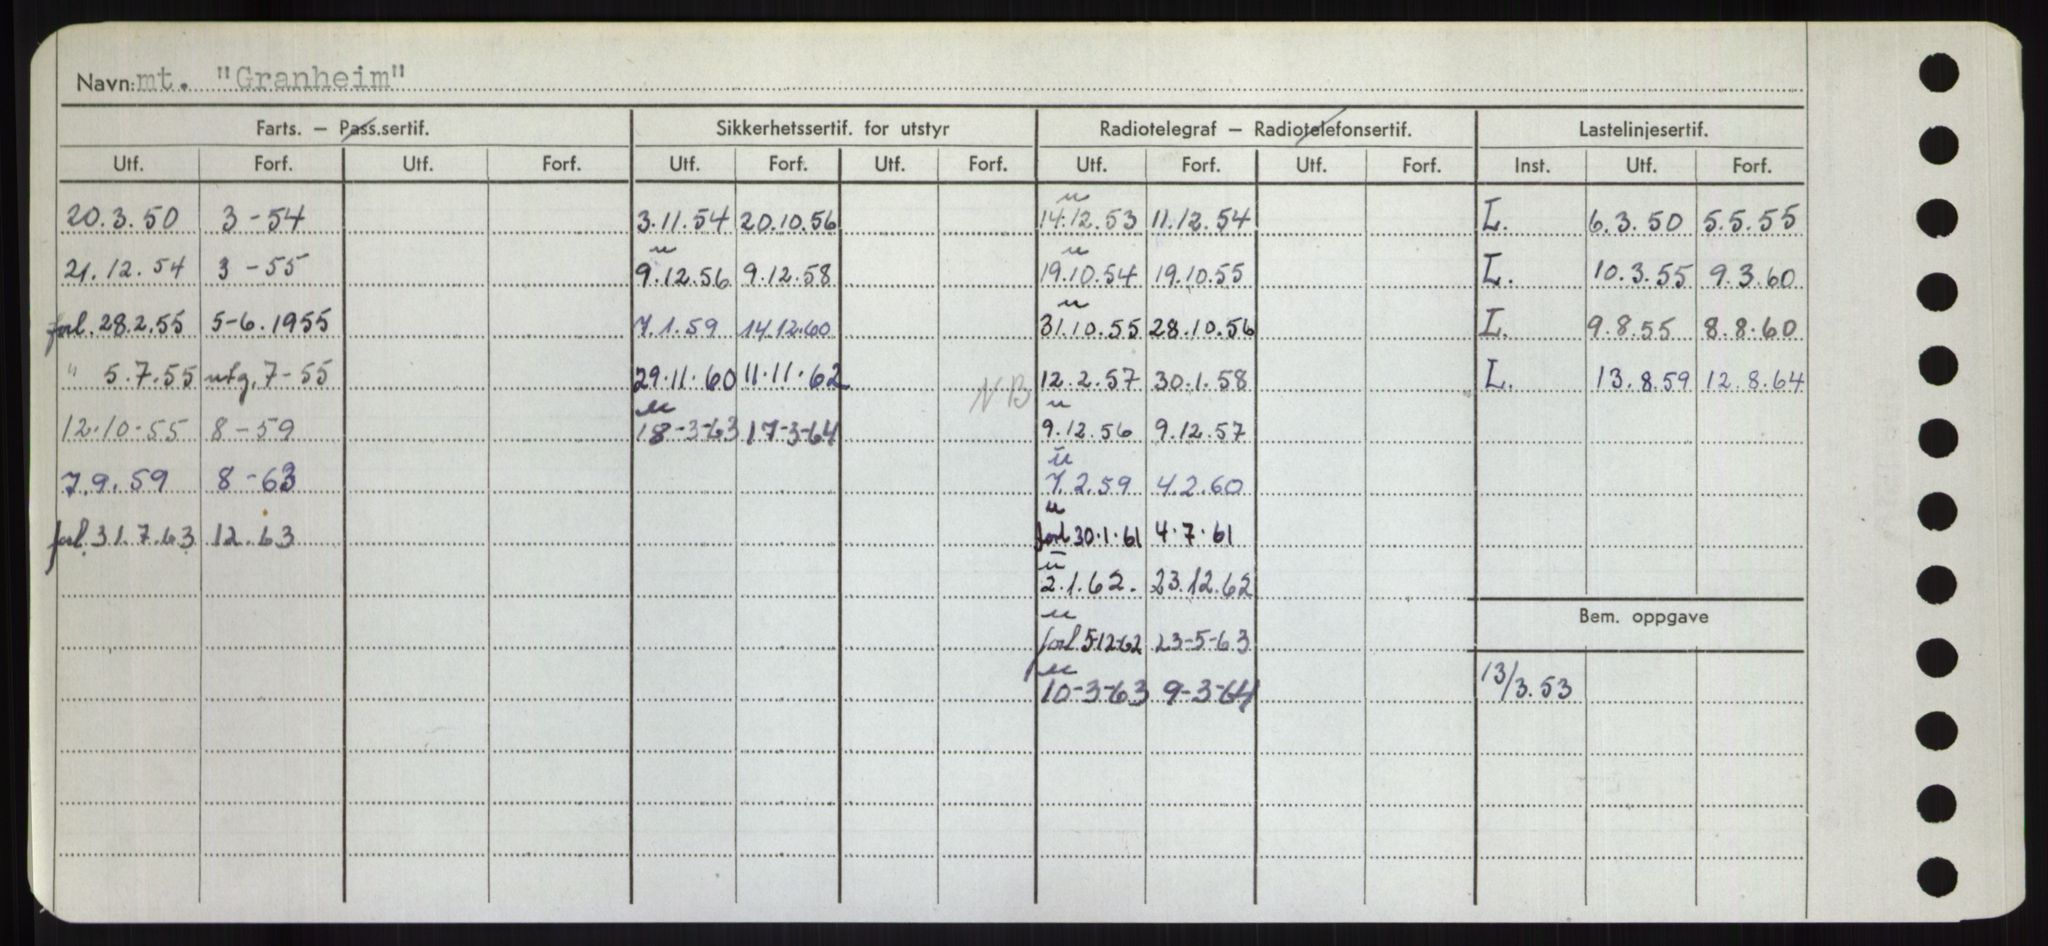 Navn: mt. "Granheim"
Farts. – Pass.sertif. Sikkerhetssertif. for utstyr Radiotelegraf – Radiotelefonsertif. Lastelinjesertif.
Utf. Forf. Utf. Forf. Utf. Forf. Utf. Forf. Utf. Forf. Utf. Forf. Inst. Utf. Forf.
u
20.3.50 3-54 3.11.54 20.10.56 14.12.53 11.12.54 L. 6.3.50 5.5.55
u u
21.12.54 3-55 9.12.56 9.12.58 19.10.54 19.10.55 L. 10.3.55 9.3.60
u
forl. 28.2.55 5-6.1955 7.1.59 14.12.60 31.10.55 28.10.56 L. 9.8.55 8.8.60
" 5.7.55 utg. 7-55 29.11.60 11.11.62 NB 12.2.57 30.1.58 L. 13.8.59 12.8.64
u u
12.10.55 8-59 18-3-63 17-3-64 9.12.56 9.12.57
u
7.9.59 8-63 7.2.59 4.2.60
u
forl. 31.7.63 12.63 forl 30.1.61 4.7.61
u
2.1.62. 23.12.62
Bem. oppgave
u
forl. 5-12-62 23-5-63
u
10-3-63 9-3-64 13/3.53